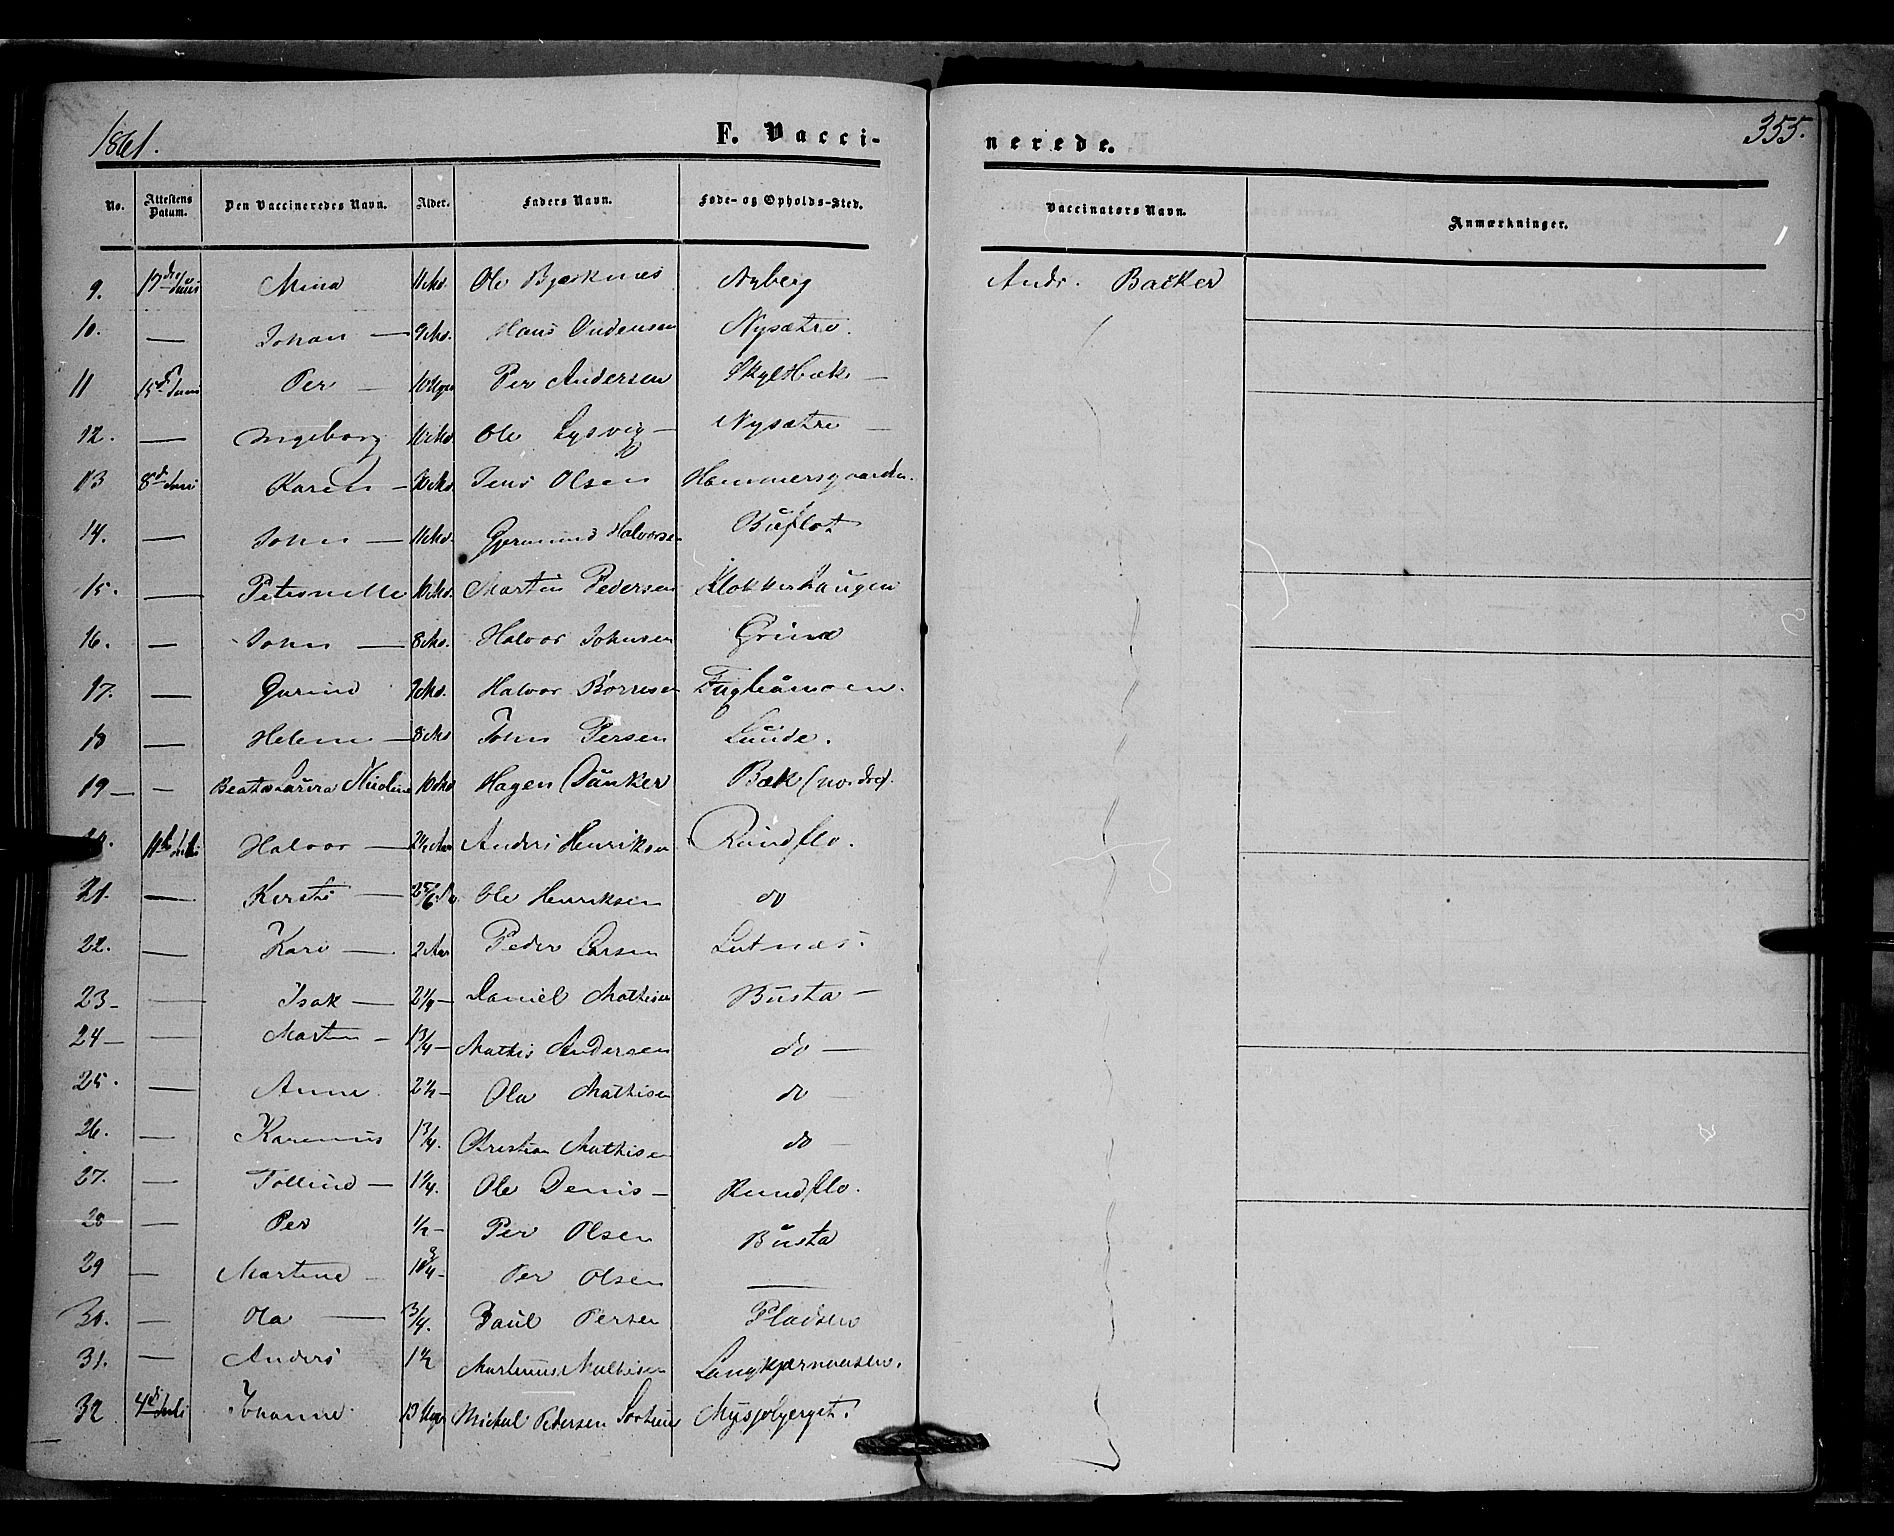 1861.
F. Vacci-
nerede.
355.
No. Attestens Datum. Den Vaccineredes Navn. Alder. Faders Navn. Føde- og Opholds-Sted. Vaccinators Navn. Anmærkninger.
9. Mina 11 Md. Ole Bjørknæs Nyberg Andr. Backer
10. — Johan — 9 Md. Hans Audensen Nysætre.
11 15de Juni Per — 10 Uger Per Andersen —
12. — Ingeborg Ole Lysvig — Nysætre —
13 8de Juni Karen — 10 Md. Jens Olsen Hammersgaarden.
14. — John — 11 Md. Gjermund Halvorsen Buflot
15. — Petronelle 10 Md. Martin Pedersen Klokkerhaugen
16. — John — 8 Md. Halvor Johnsen Grina
17. — Gurine 9 Md. Halvor Børresen Fugleåmoen.
18 — Helene — 8 Md John Persen Lunde.
19 — — Beata Laura Nicoline 10 Md Hagen Dunker Bæk (nordre).
20. 11te Juli Halvor — 2½ Aar Anders Henriksen Rundflo.
21. — Kersti — 2 5/6 do Ole Henriksen do
22. — Kari — 2 Aar Peder Larsen Lutnæs.
23 — Isak — 2¼ — Daniel Mathisen Busta —
24 — — Martin — 1¾ — Mathis Andersen do —
25. — Anne 2½ — Ola Mathisen do —
26. — Karenus 1¾. Christian Mathisen do —
27. — Tolline — 1¼. Ole Denis — Rundflo.
28 — Per ½ — Per Olsen Busta
29 — Martine — Per Olsen —
30. — Ola — ¾. Paul Persen Pladsen
31. — Anders 1½ Martinus Mathisen
32 4de Juli Johanne 13 Uger Michel Pedersen